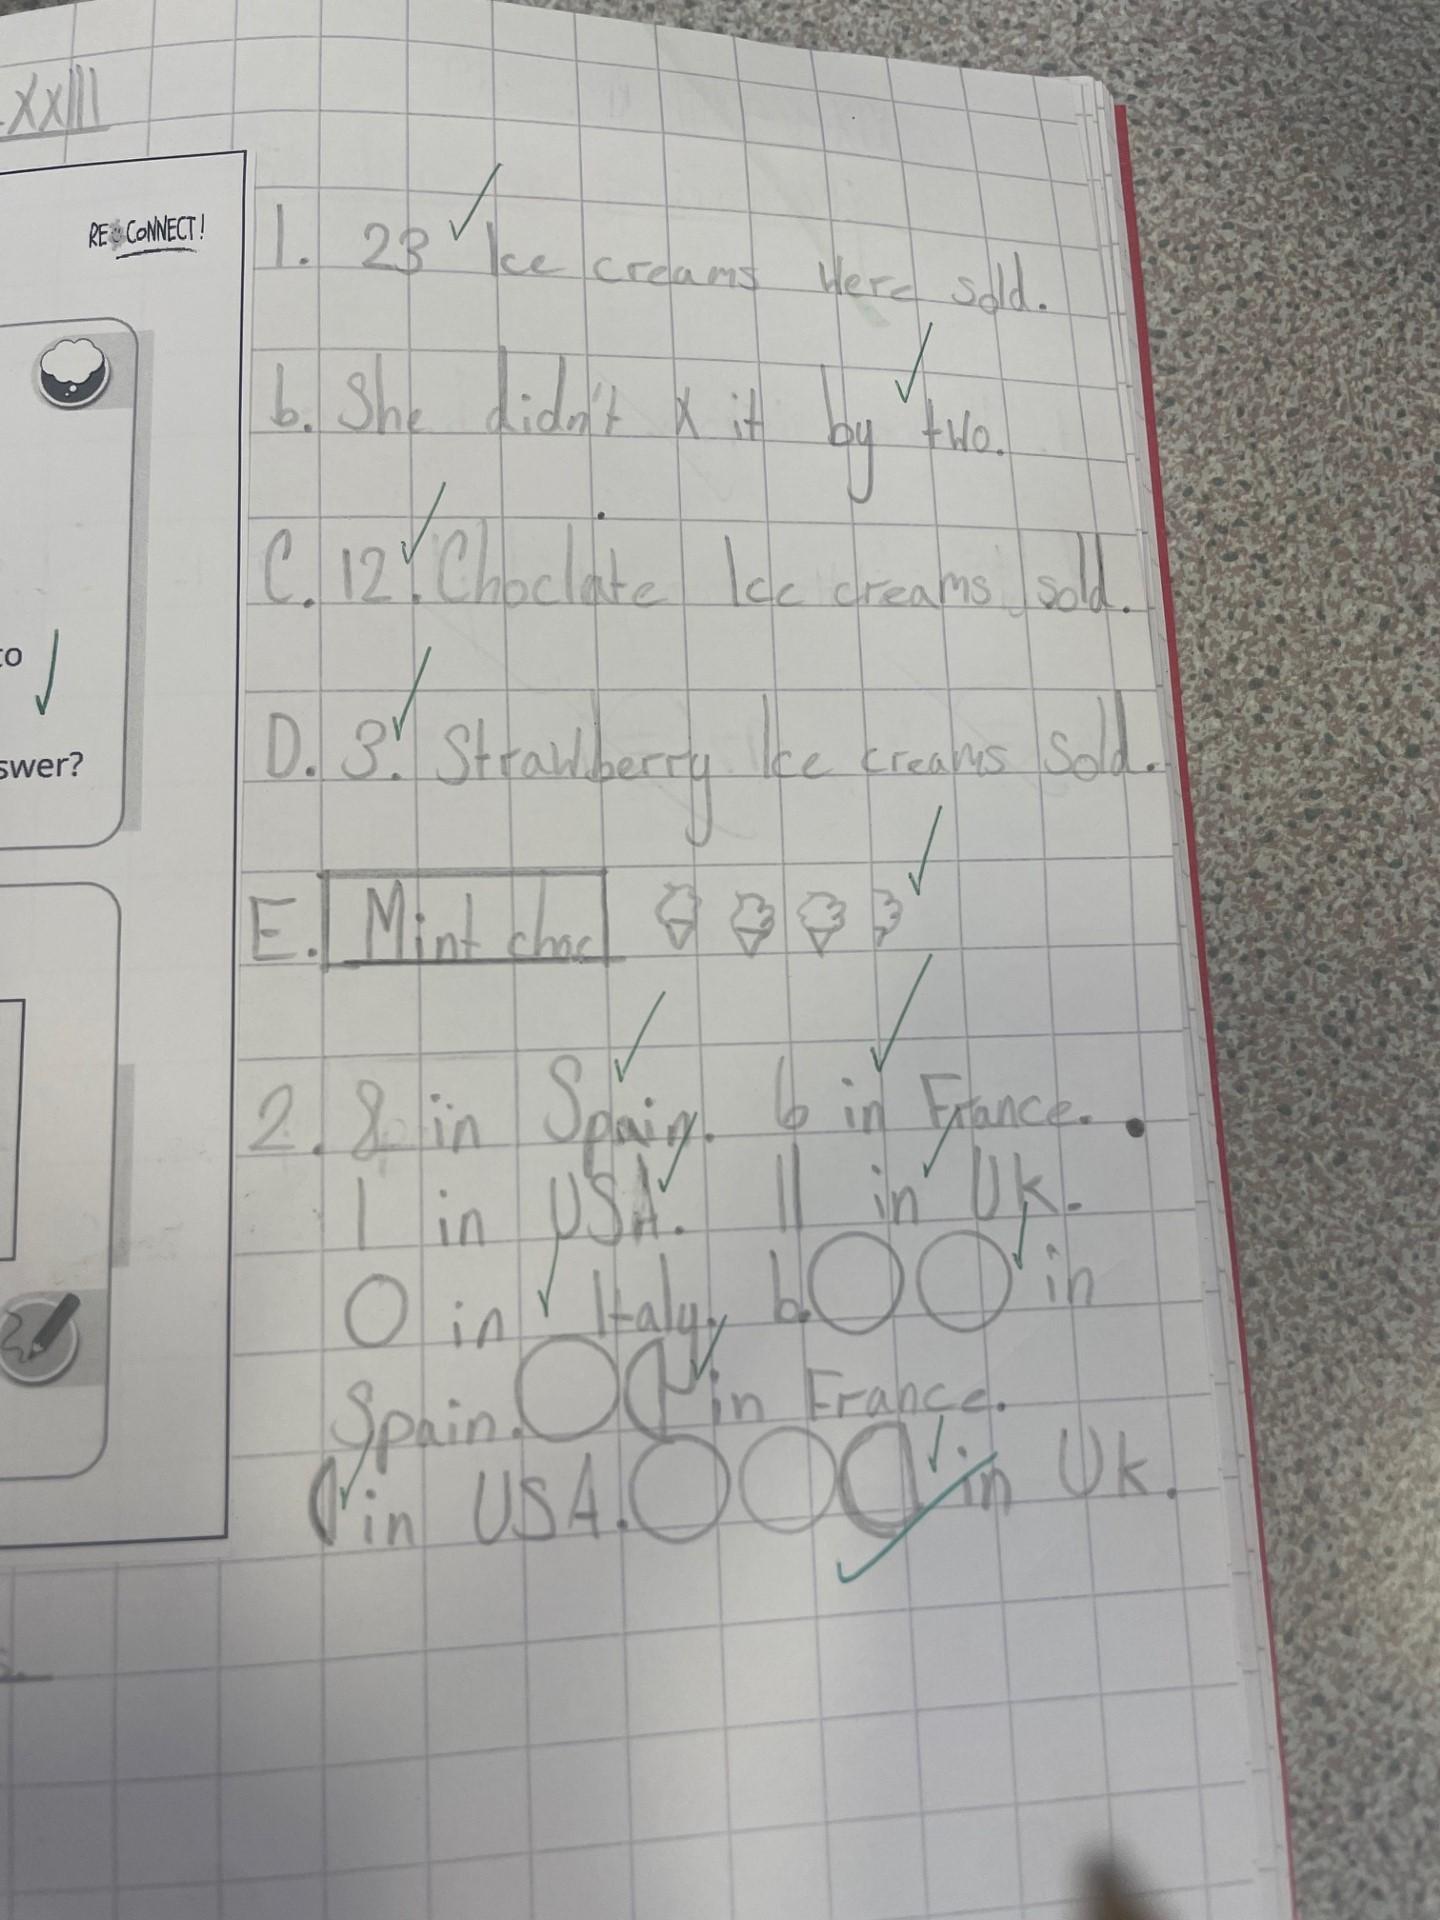 XXIII
RECONNECT!
1. 23 Ice creams were sold.
b. She didn't x it by two.
to
C. 12. Choclate Ice creams sold.
swer?
D. 3. Strawberry Ice creams Sold.
E. Mint choc
2. 8 in Spain. 6 in France.
1 in USA. 11 in Uk.
0 in Italy. b. in
Spain. in France.
in USA. in Uk.